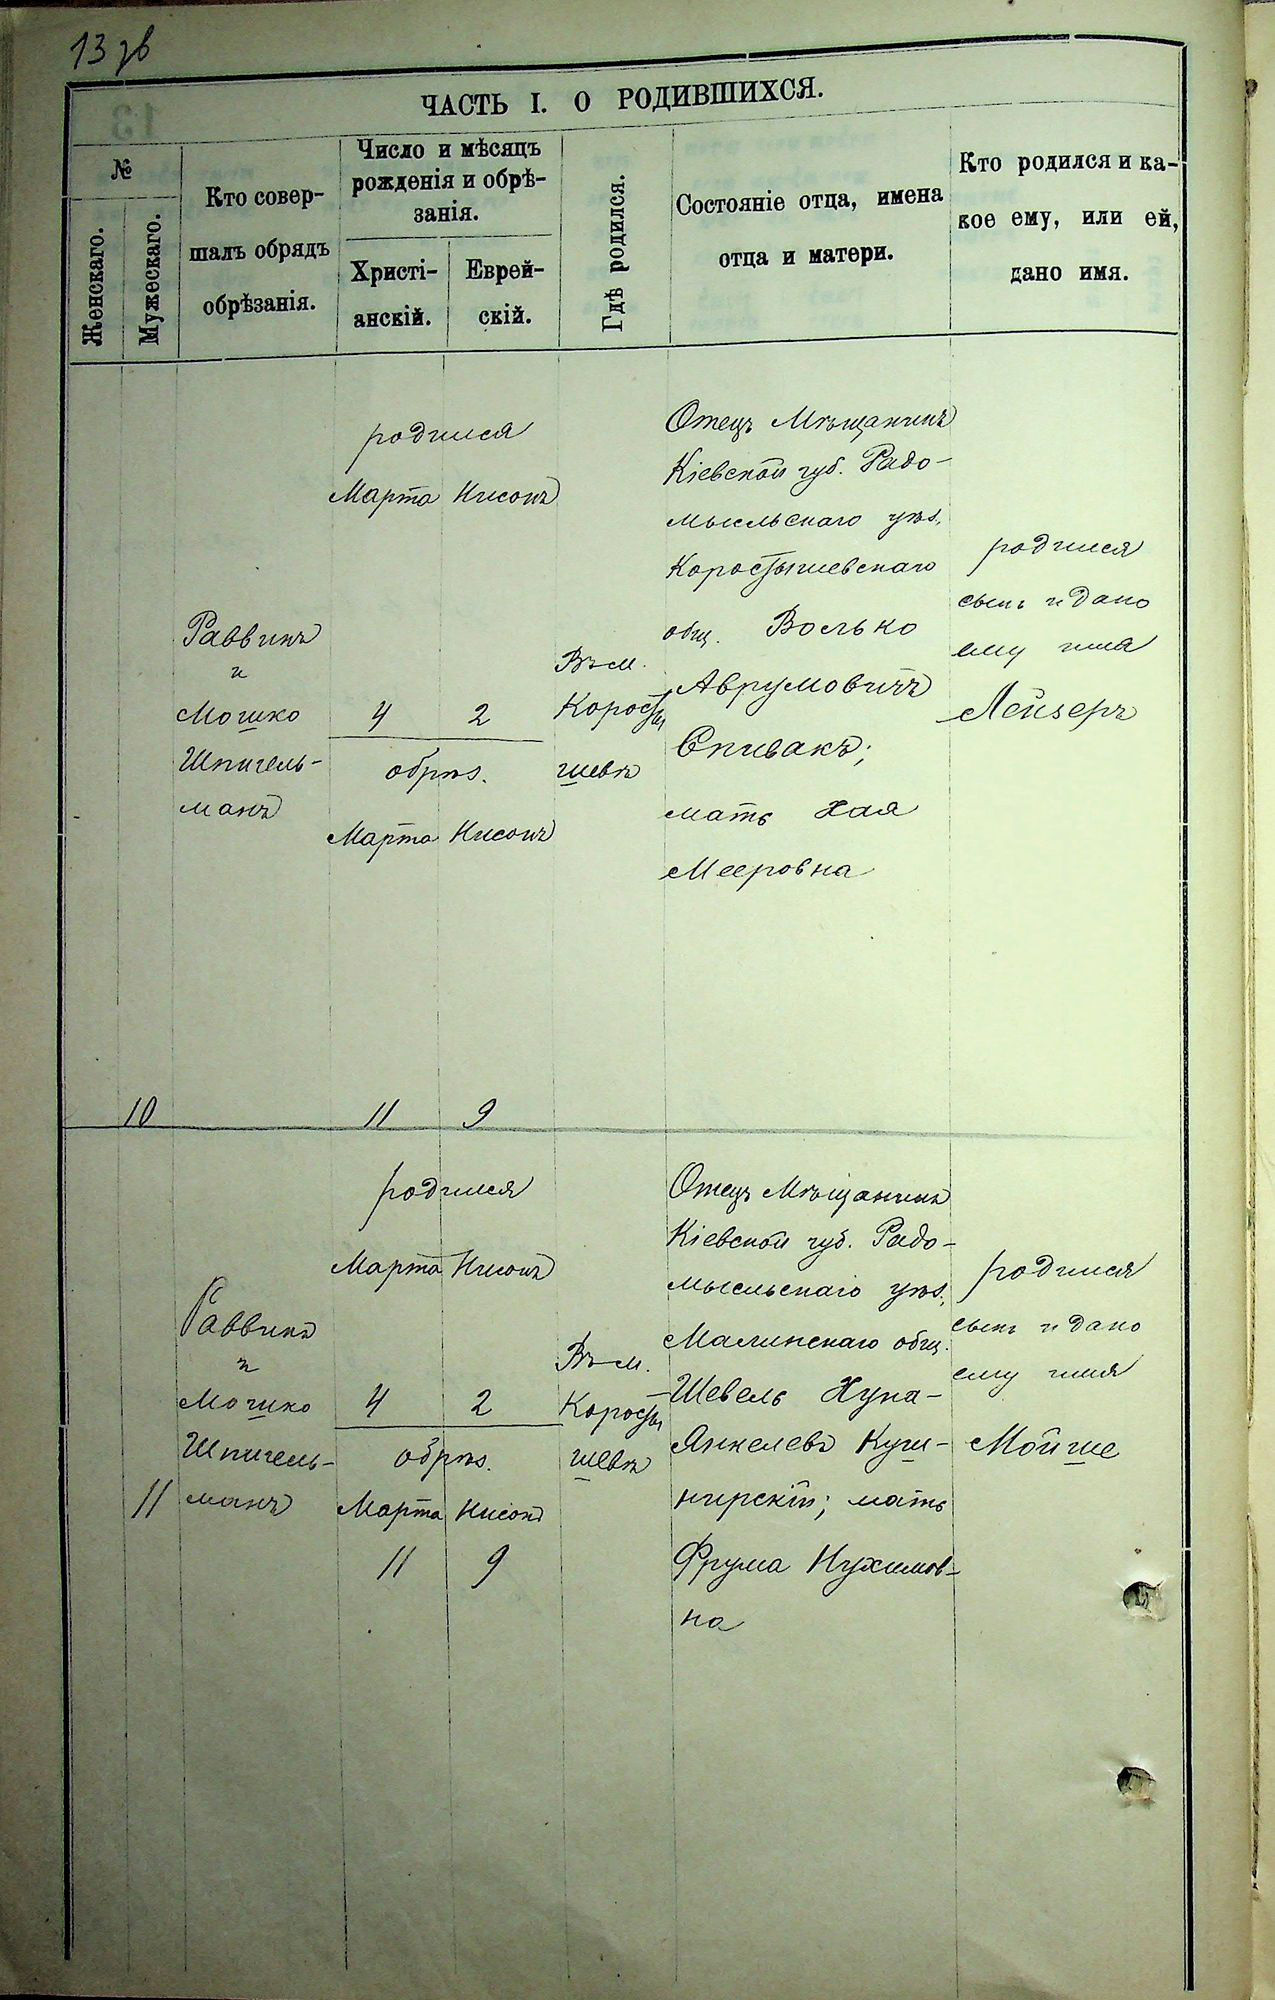 13 зв
ЧАСТЬ I. О РОДИВШИХСЯ.
№
Женскаго.
Мужескаго.
Кто совер-
шалъ обрядъ
обрѣзанія.
Число и мѣсяцъ
рожденія и обрѣ-
занія.
Христі-
анскій.
Еврей-
скій.
Гдѣ родился.
Состояніе отца, имена
отца и матери.
Кто родился и ка-
кое ему, или ей,
дано имя.
10
Раввинъ
и
Мошко
Шпигель-
манъ
родился
Марта Нисонъ
4 2
обрѣз.
Марта Нисонъ
11 9
Въ м.
Коросты
шевѣ
Отецъ Мѣщанинъ
Кіевской губ. Радо-
мысльскаго уѣз.
Коростышевскаго
общ. Волько
Аврумовичъ
Спивакъ;
мать Хая
Мееровна
родился
сынъ и дано
ему имя
Лейзеръ
11
Раввинъ
и
Мошко
Шпигель-
манъ
родился
Марта Нисонъ
4 2
обрѣз.
Марта Нисонъ
11 9
Въ м.
Коросты
шевѣ
Отецъ Мѣщанинъ
Кіевской губ. Радо-
мысльскаго уѣз.
Малинскаго общ.
Шевель Хуна-
Янкелевъ Куши-
нирскій; мать
Фрума Нухимов-
на
родился
сынъ и дано
ему имя
Мойше